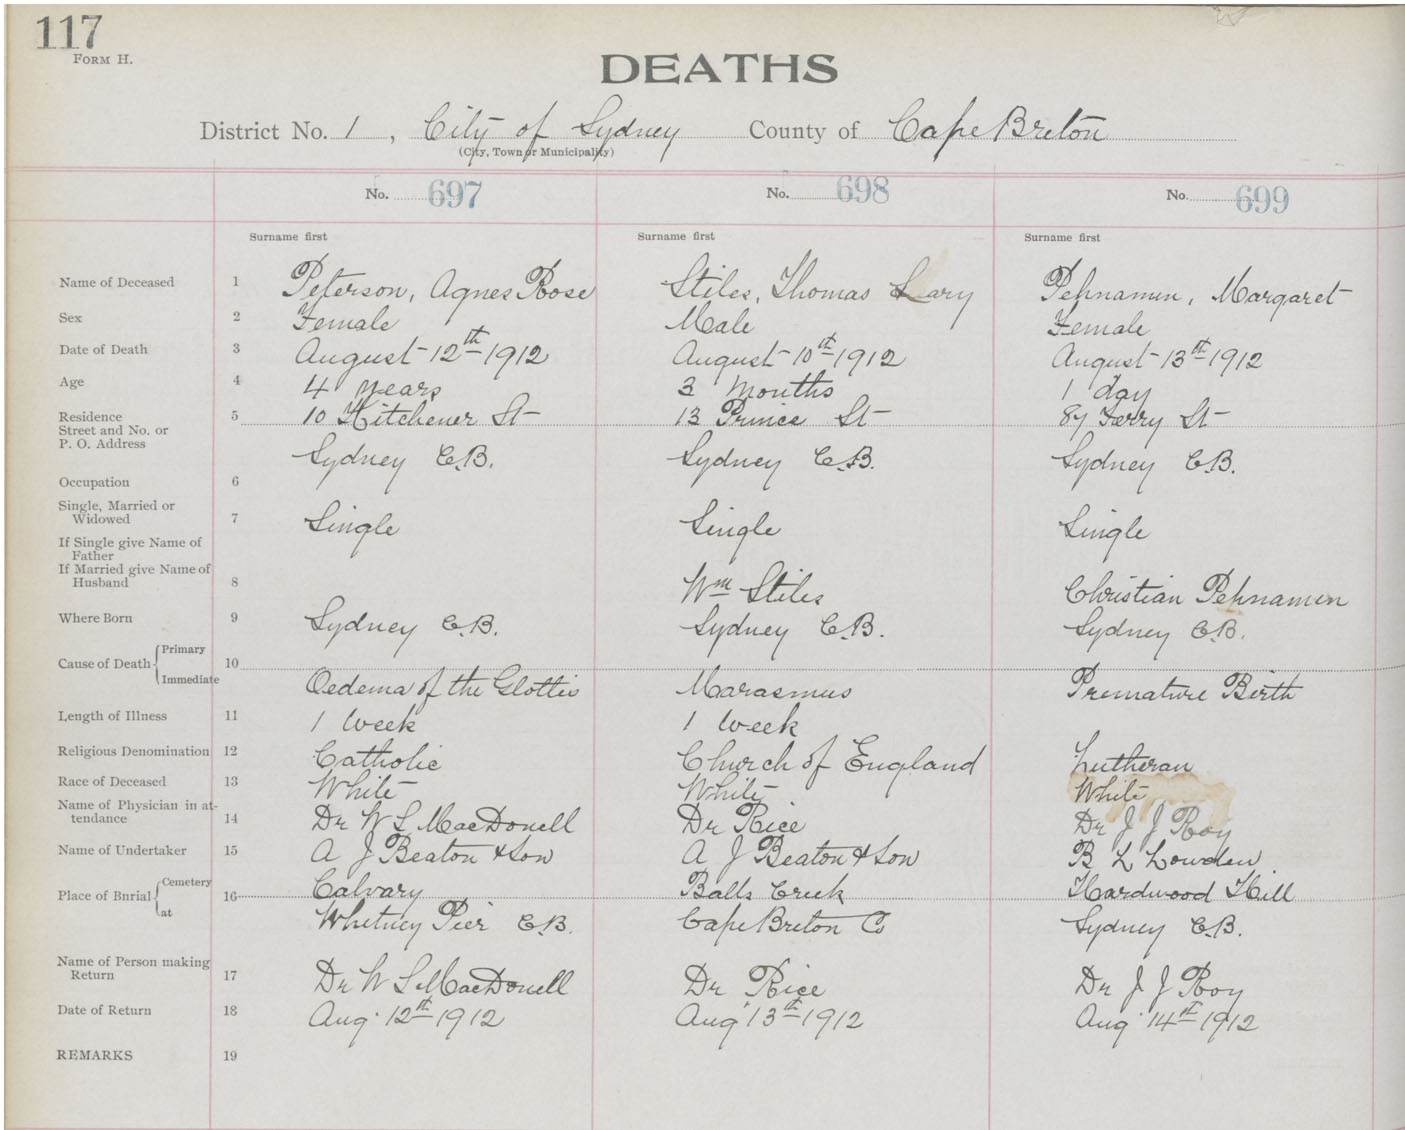 117
FORM H.
DEATHS
District No. 1, City of Sydney County of Cape Breton
(City, Town or Municipality)
No. 697 No. 698 No. 699
Surname first Surname first Surname first
Name of Deceased 1 Peterson, Agnes Rose Stiles, Thomas Lary Pehnamen, Margaret
Sex 2 Female Male Female
Date of Death 3 August 12th 1912 August 10th 1912 August 13th 1912
Age 4 4 years 3 months 1 day
Residence 5 10 Kitchener St 13 Prince St 87 Ferry St
Street and No. or
P. O. Address Sydney C.B. Sydney C.B. Sydney C.B.
Occupation 6
Single, Married or
Widowed 7 Single Single Single
If Single give Name of
Father
If Married give Name of
Husband 8 Wm Stiles Christian Pehnamen
Where Born 9 Sydney C.B. Sydney C.B. Sydney C.B.
Primary
Cause of Death 10
Immediate Oedema of the Glottis Marasmus Premature Birth
Length of Illness 11 1 Week 1 Week
Religious Denomination 12 Catholic Church of England Lutheran
Race of Deceased 13 White White White
Name of Physician in at-
tendance 14 Dr W L MacDonell Dr Rice Dr J J Roy
Name of Undertaker 15 A J Beaton & Son A J Beaton & Son B L Lowden
Cemetery
Place of Burial 16 Calvary Balls Creek Hardwood Hill
at Whitney Pier C.B. Cape Breton Co Sydney C.B.
Name of Person making
Return 17 Dr W L MacDonell Dr Rice Dr J J Roy
Date of Return 18 Aug 12th 1912 Aug 13th 1912 Aug 14th 1912
REMARKS 19